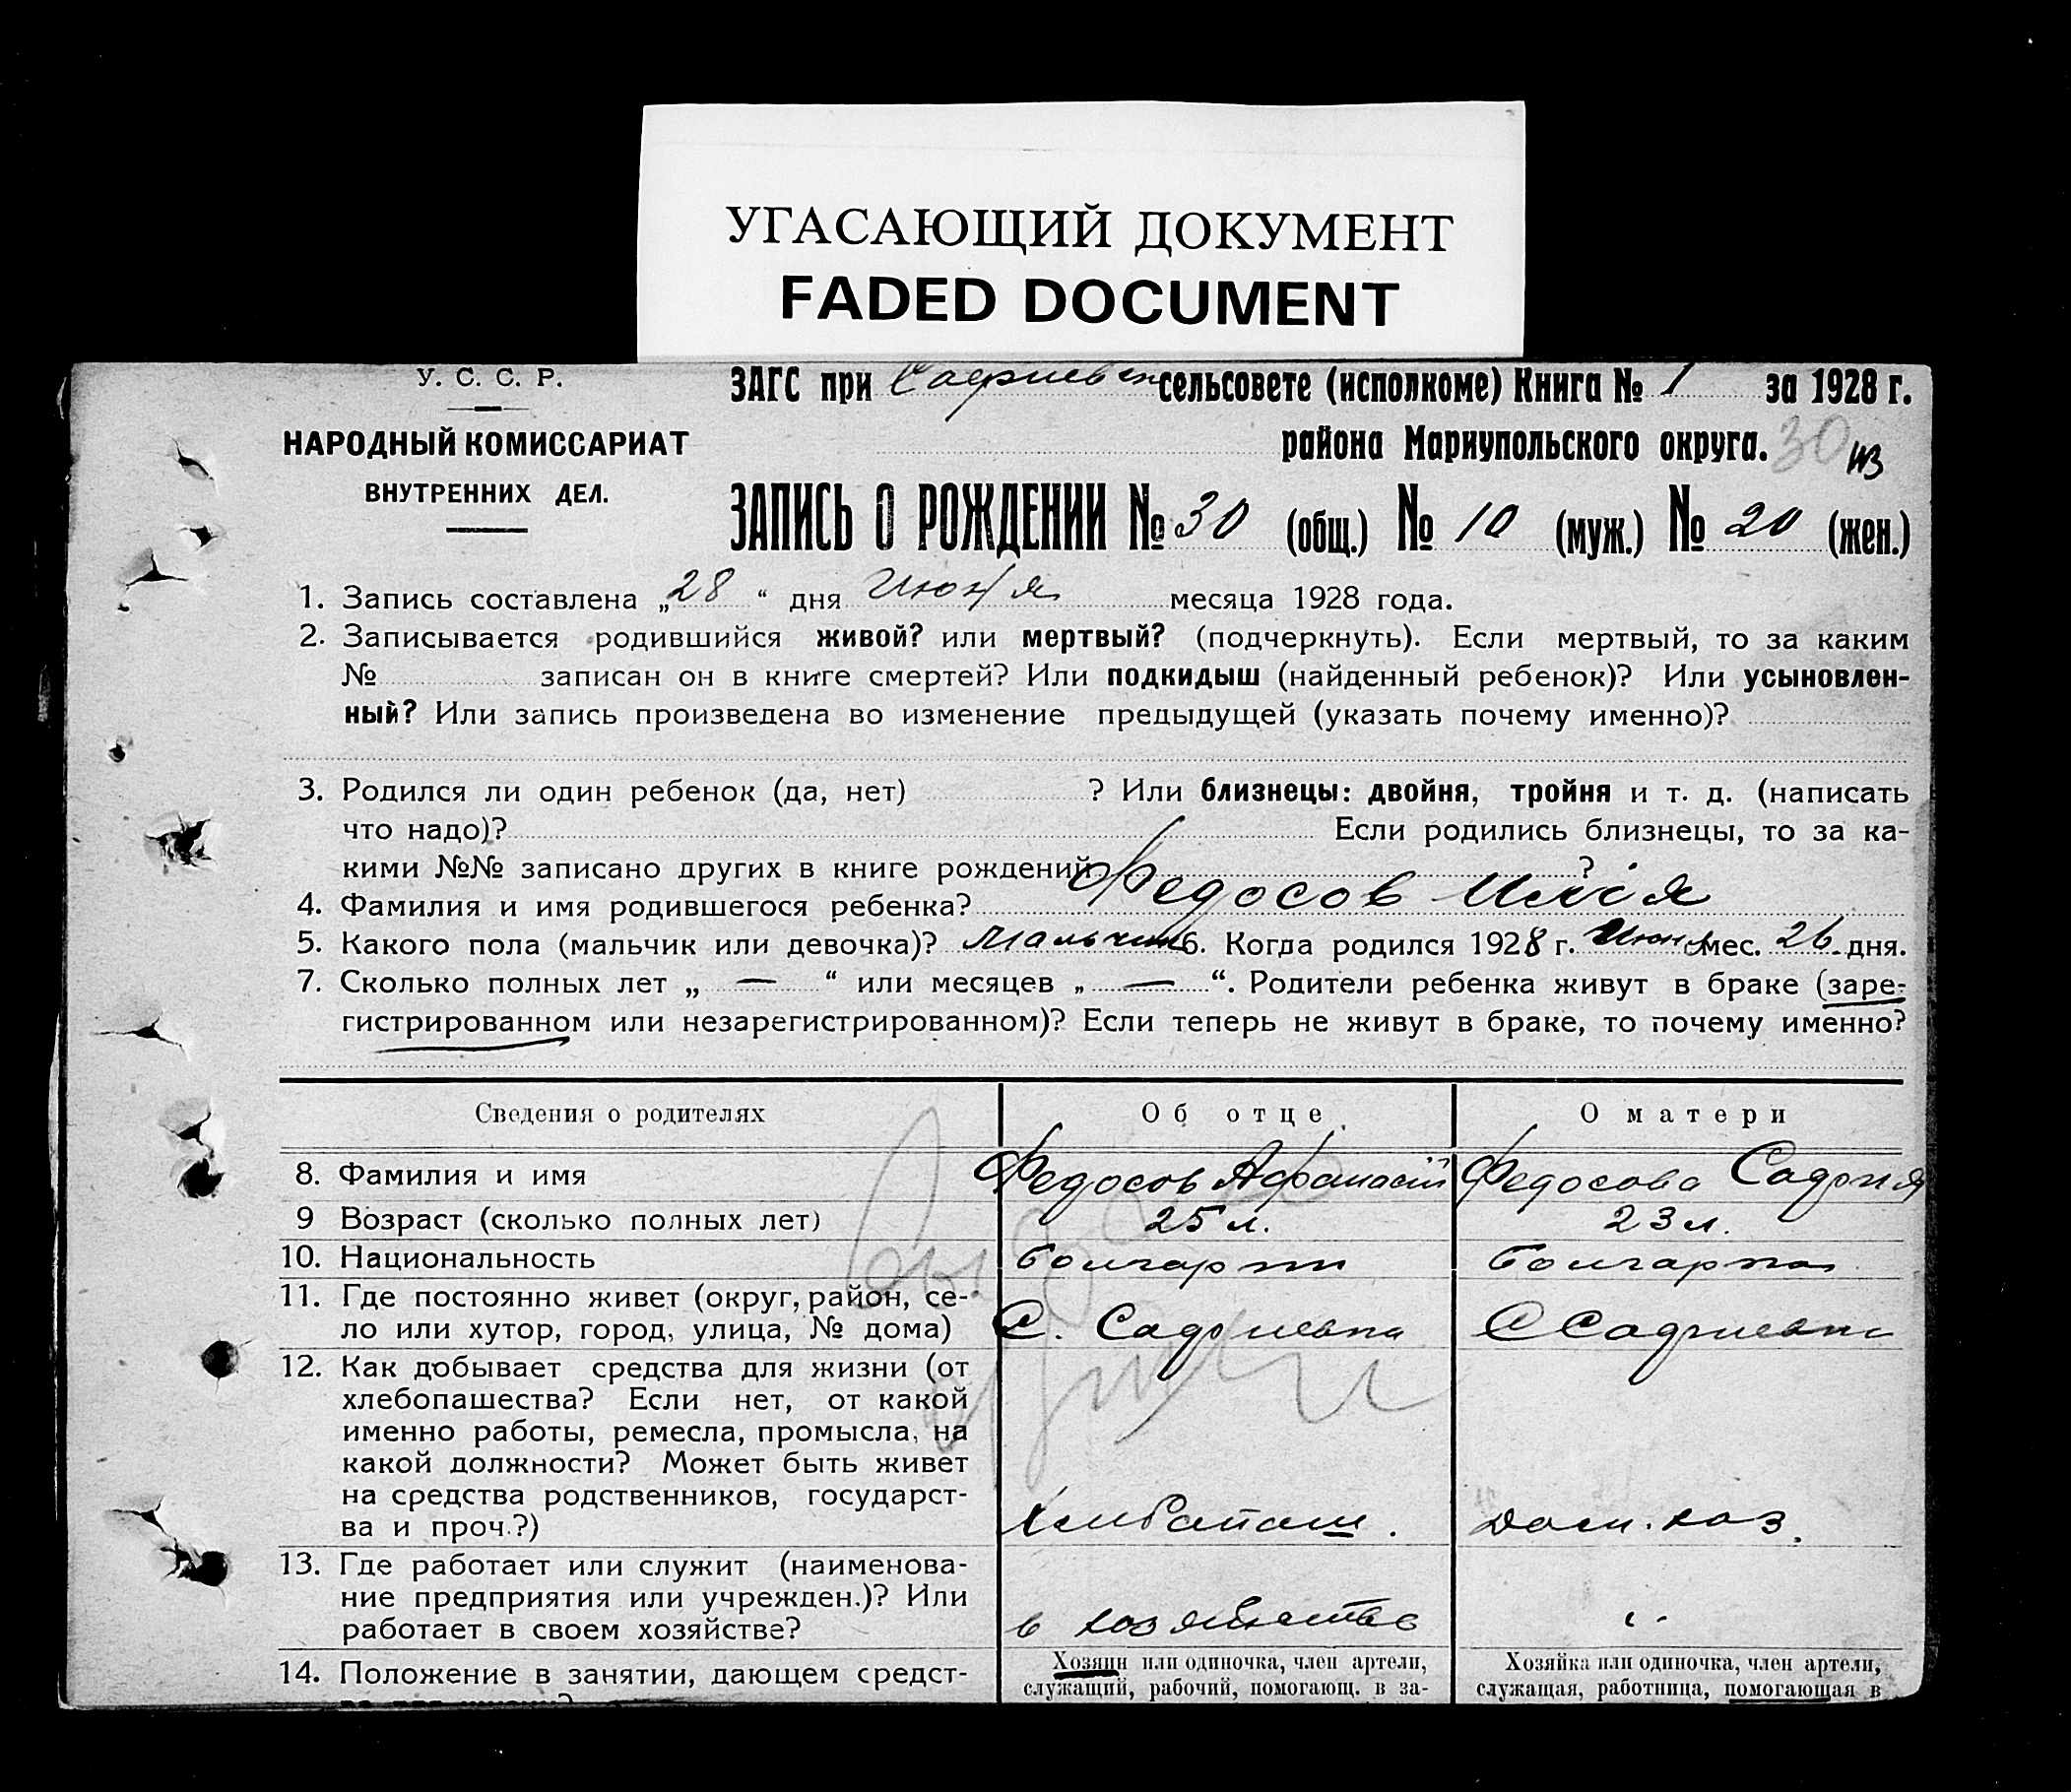 УГАСАЮЩИЙ ДОКУМЕНТ
FADED DOCUMENT
У. С. С. Р.
НАРОДНЫЙ КОМИССАРИАТ
ВНУТРЕННИХ ДЕЛ.
ЗАГС при сельсовете (исполкоме) Книга № 1 за 1928 г.
района Мариупольского округа. 30
ЗАПИСЬ О РОЖДЕНИИ № 30 (общ.) № 10 (муж.) № 20 (жен.)
1. Запись составлена „28“ дня Июня месяца 1928 года.
2. Записывается родившийся живой? или мертвый? (подчеркнуть). Если мертвый, то за каким
№ записан он в книге смертей? Или подкидыш (найденный ребенок)? Или усыновлен-
ный? Или запись произведена во изменение предыдущей (указать почему именно)?
3. Родился ли один ребенок (да, нет) ? Или близнецы: двойня, тройня и т. д. (написать
что надо)? Если родились близнецы, то за ка-
кими №№ записано других в книге рождений ?
4. Фамилия и имя родившегося ребенка? Федосов Илія
5. Какого пола (мальчик или девочка)? Мальчик 6. Когда родился 1928 г. Июня мес. 26 дня.
7. Сколько полных лет „ — “ или месяцев „ — “. Родители ребенка живут в браке (заре-
гистрированном или незарегистрированном)? Если теперь не живут в браке, то почему именно?
Сведения о родителях Об отце О матери
8. Фамилия и имя Федосов Афанасий Федосова
9 Возраст (сколько полных лет) 25 л. 23 л.
10. Национальность болгарин болгарка
11. Где постоянно живет (округ, район, се-
ло или хутор, город, улица, № дома) С. С
12. Как добывает средства для жизни (от
хлебопашества? Если нет, от какой
именно работы, ремесла, промысла, на
какой должности? Может быть живет
на средства родственников, государст-
ва и проч.?) Дом. хоз.
13. Где работает или служит (наименова-
ние предприятия или учрежден.)? Или
работает в своем хозяйстве? в хозяйстве
14. Положение в занятии, дающем средст-
Хозяин или одиночка, член артели,
служащий, рабочий, помогающ. в за-
Хозяйка или одиночка, член артели,
служащая, работница, помогающая в